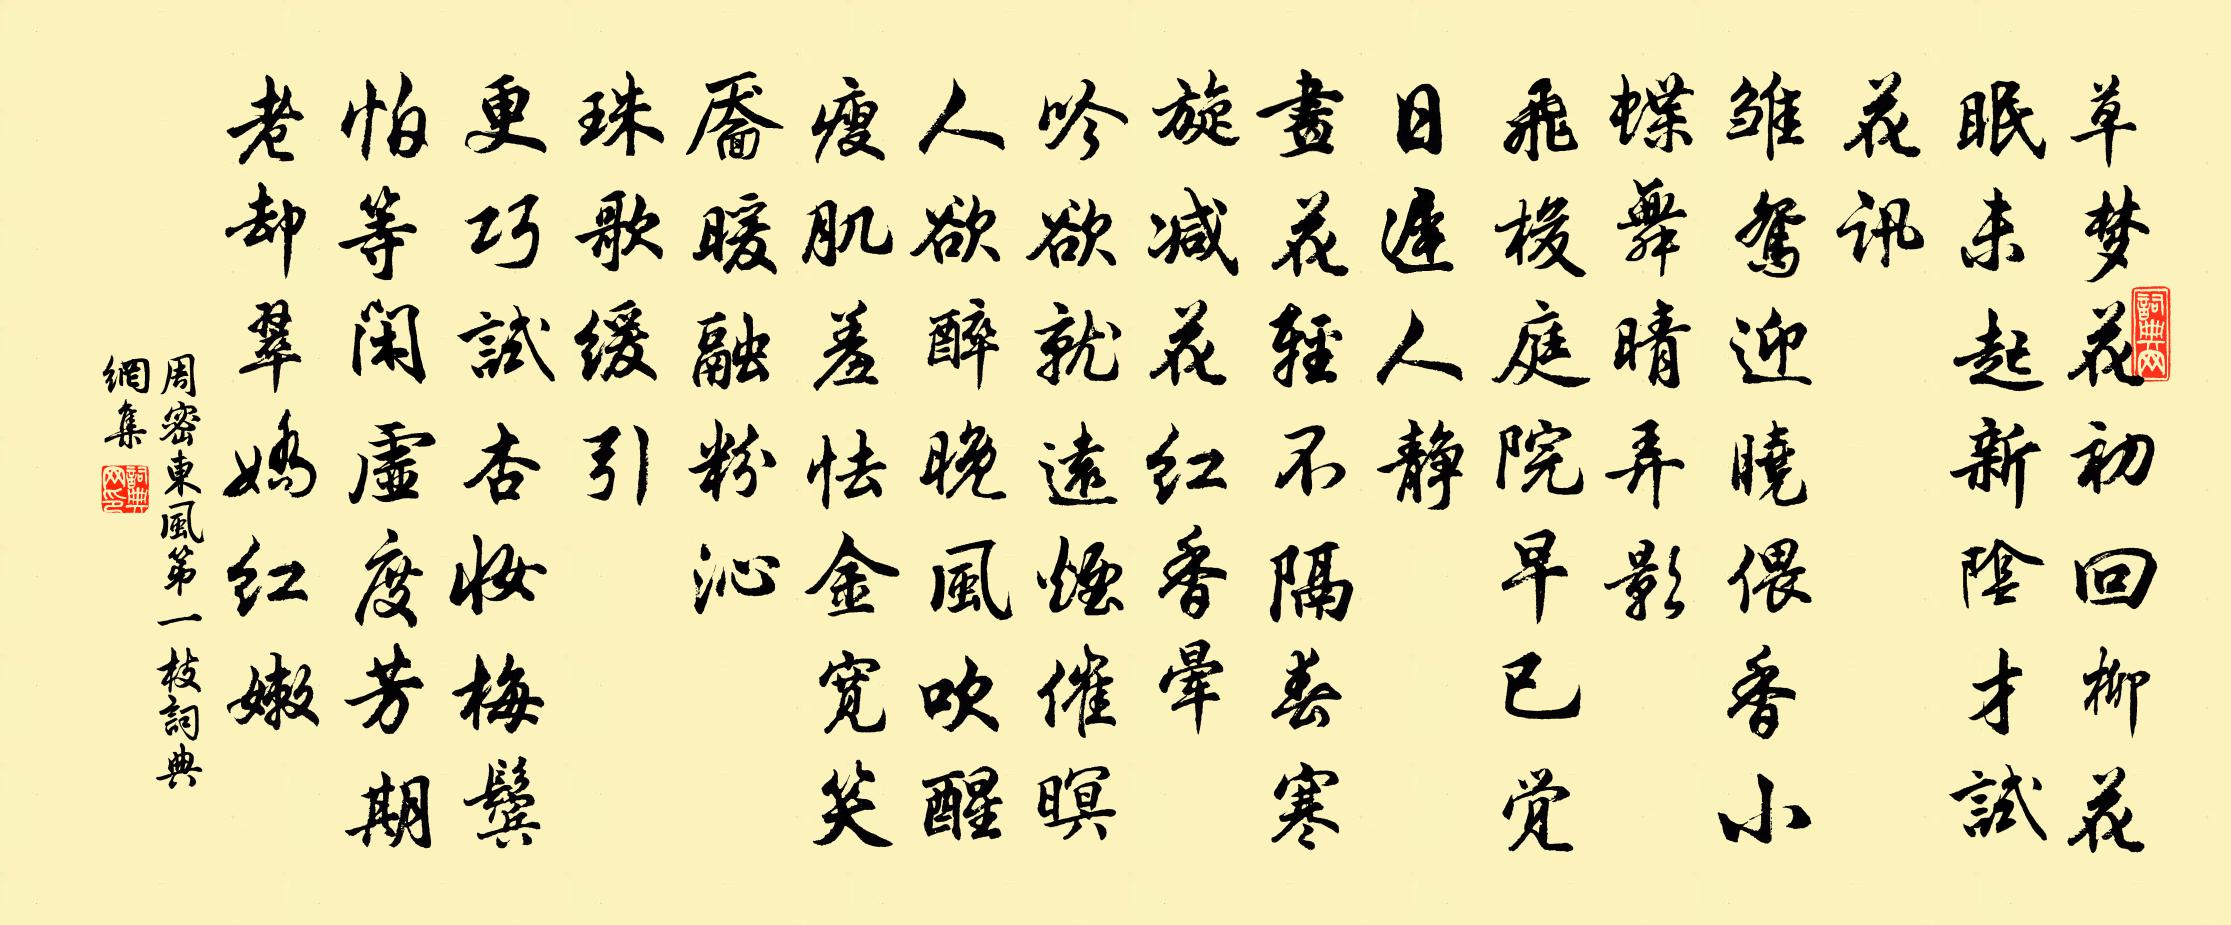 草梦花初回柳花
眠未起新陰才試
花訊
雏鴛迎曉偎香小
蝶舞晴弄影
飛梭庭院早已觉
日遲人静
畫花輕不隔春寒
旋减花红香暈
吟欲就遠煙催暝
人欲醉晚風吹醒
瘦肌羞怯金寬笑
靨暖融粉沁
珠歌缓引
更巧試杏妝梅鬓
怕等闲虛度芳期
老却翠嬌红嫩
周密東風第一枝詞典
網集
詞典网
詞典网印